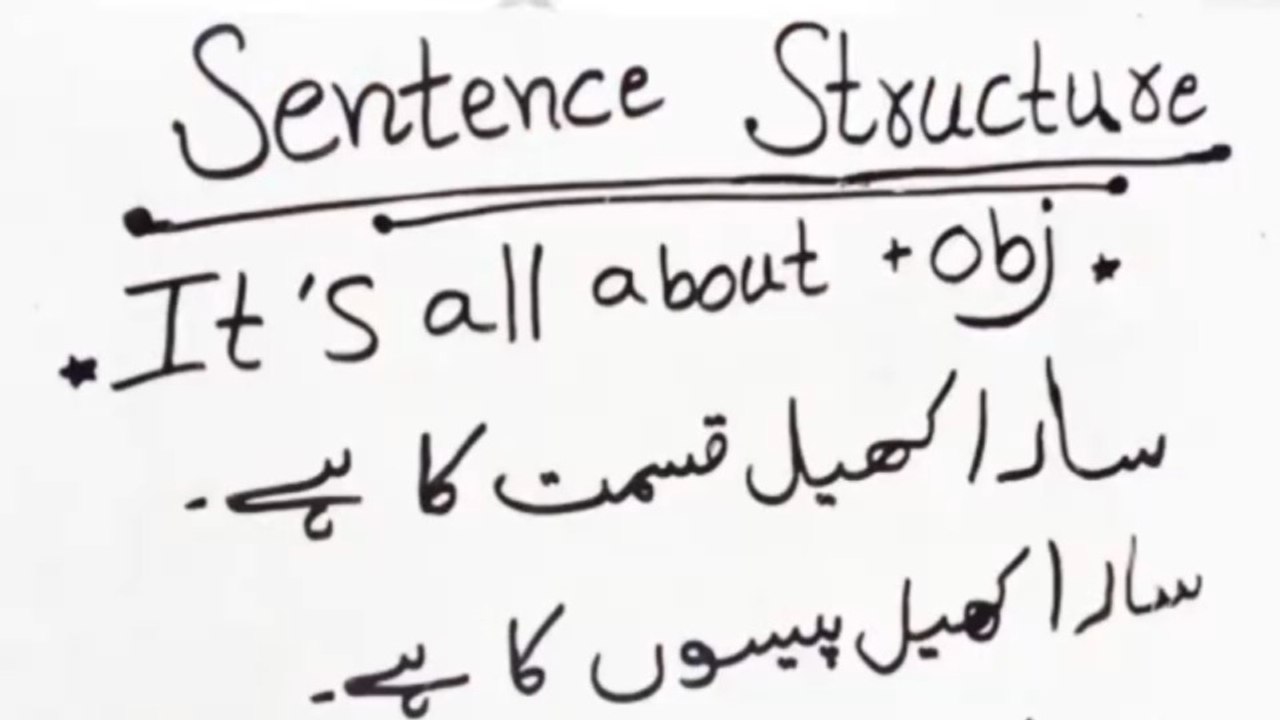 Sentence Structure
It's all about + obj
سارا کھیل قسمت کا ہے۔
سارا کھیل پیسوں کا ہے۔